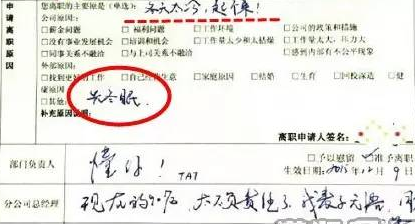 您离职的主要原是(单选): 冬天太冷,起不来!
申请离职原因
公司原因:
□薪金问题 □福利问题 □工作环境 □公司的政策和措施
□没有事业发展机会 □培训和机会 □工作量太少和太枯燥 □工作量太大、压力大
□同事关系不融洽 □与上司关系不融洽 □感到内部有不公平现象
外部原因:
□找到更好的工作 □自己经营生意 □家庭原因 □结婚 □生育 □回校深造 □健
康原因
□其他 去冬眠.
补充原因说明:
离职申请人签名:
部门负责人 懂你! TAT □予以慰留 ☑准予离职
生效日期: 2015. 12月9日
分公司总经理 现在的90花,太不负责任了,